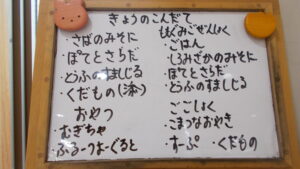 きょうのこんだて
・さばのみそに
・ぽてとさらだ
・とうふのすましじる
・くだもの
おやつ
・むぎちゃ
・ふるーつよーぐると
もぐもぐごぜんしょく
・ごはん
・しろみざかのみそに
・ぽてとさらだ
・とうふのすましじる
ごごしょく
・こまつなおやき
・すーぷ ・くだもの